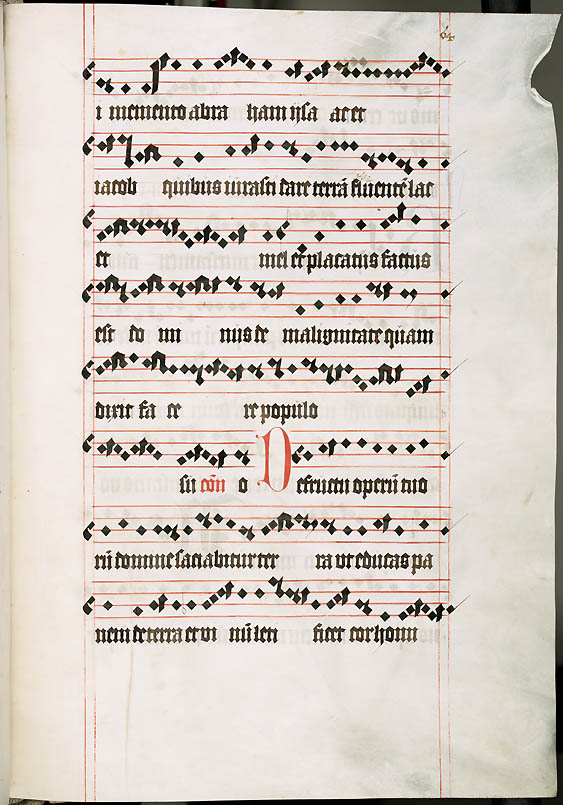 64
i memento abra ham ysa ac et
iacob quibus iurasti dare terrā fluentē lac
et mel et placatus factus
est do mi nus de malignitate quam
dixit fa ce re populo
su cōn o D e fructu operū tuo
rū domine saciabitur ter ra ut educas pa
nem de terra et vi nū leti ficet cor homi